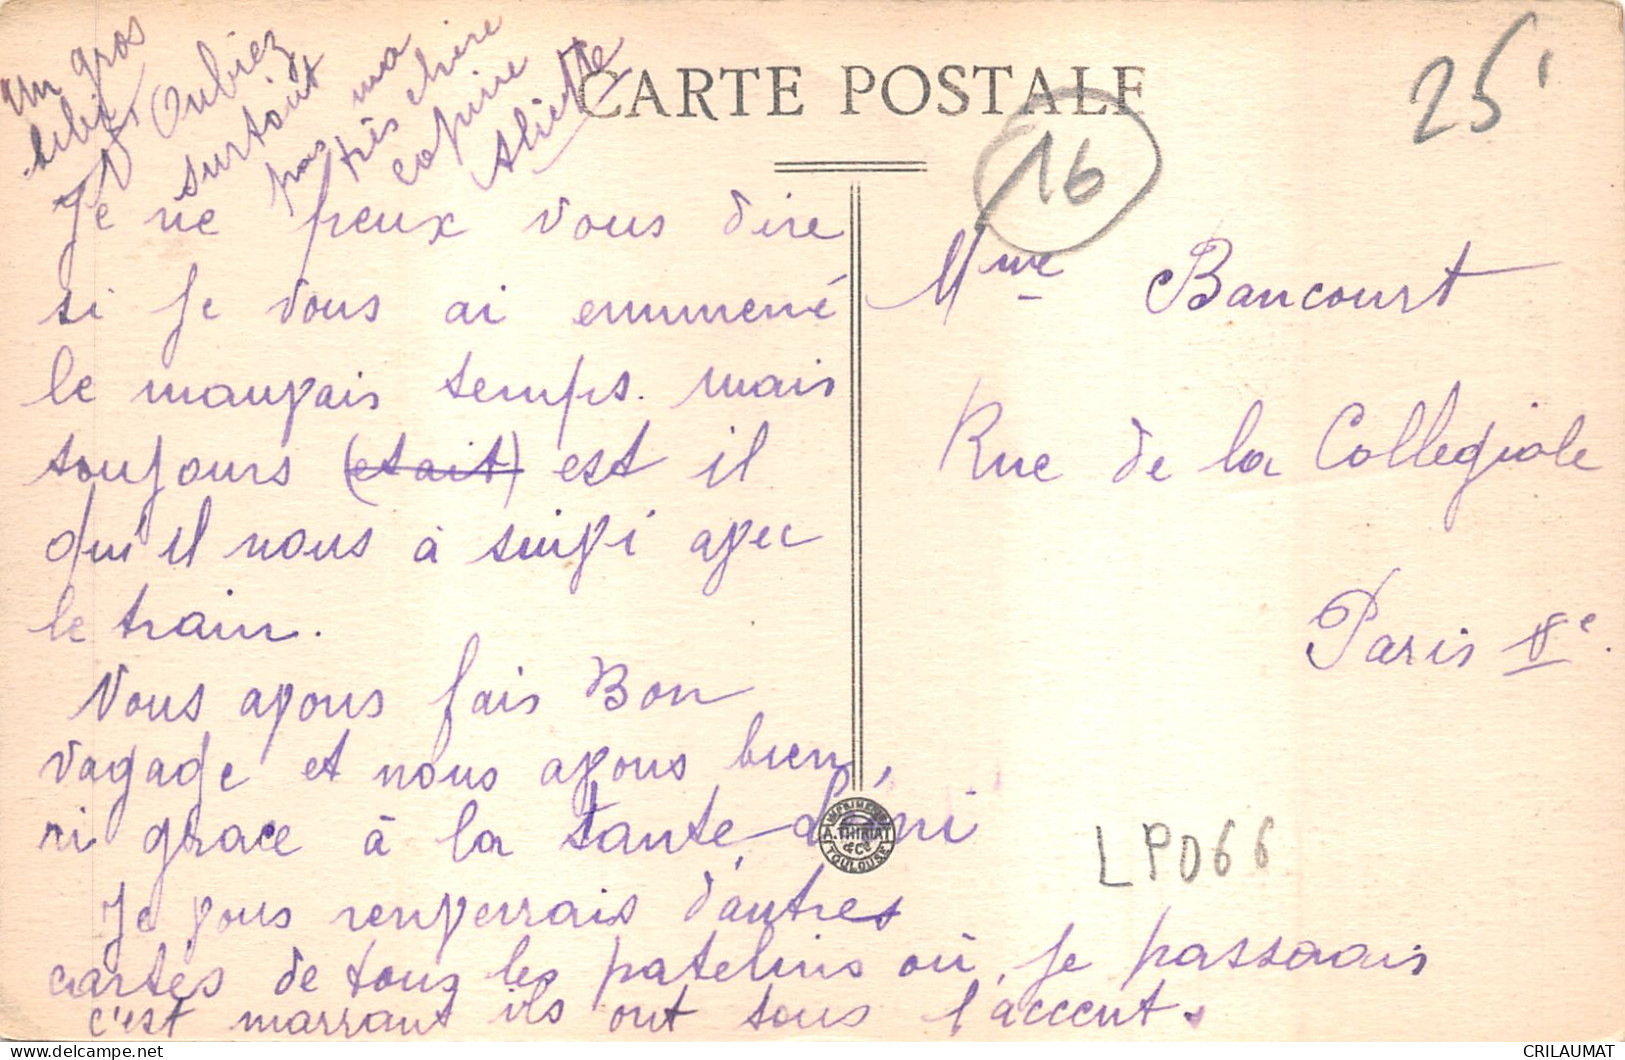 CARTE POSTALE
25'
16
Un gros
bibi
N'Oubiez
surtout
pas ma
très chire
copine
Aliette
Je ne peux vous dire
si je vous ai emmené
le mauvais temps. mais
toujours (etait) est il
qu'il nous à suivi avec
le train.
Vous avons fais Bon
vagage et nous avons bien
ri grace à la tante
Je vous renverrais d'autres
cartes de tous les patelins où je passaais
c'est marrant ils ont tous l'accent.
Mme Bancourt
Rue de la Collegiale
Paris
IMPRIMERIE
A. THIRIAT
& Cie
TOULOUSE
LPD66
CRILAUMAT